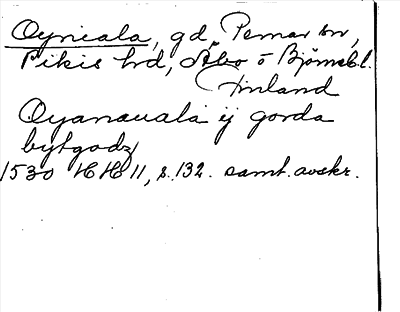 Oynicala, gd, Pemar sn,
Pikis hrd, Åbo o Björneb. l.
Finland
Oyanauala ij gorda
bytgodz
1530 HH 11, s. 132. samt. avskr.